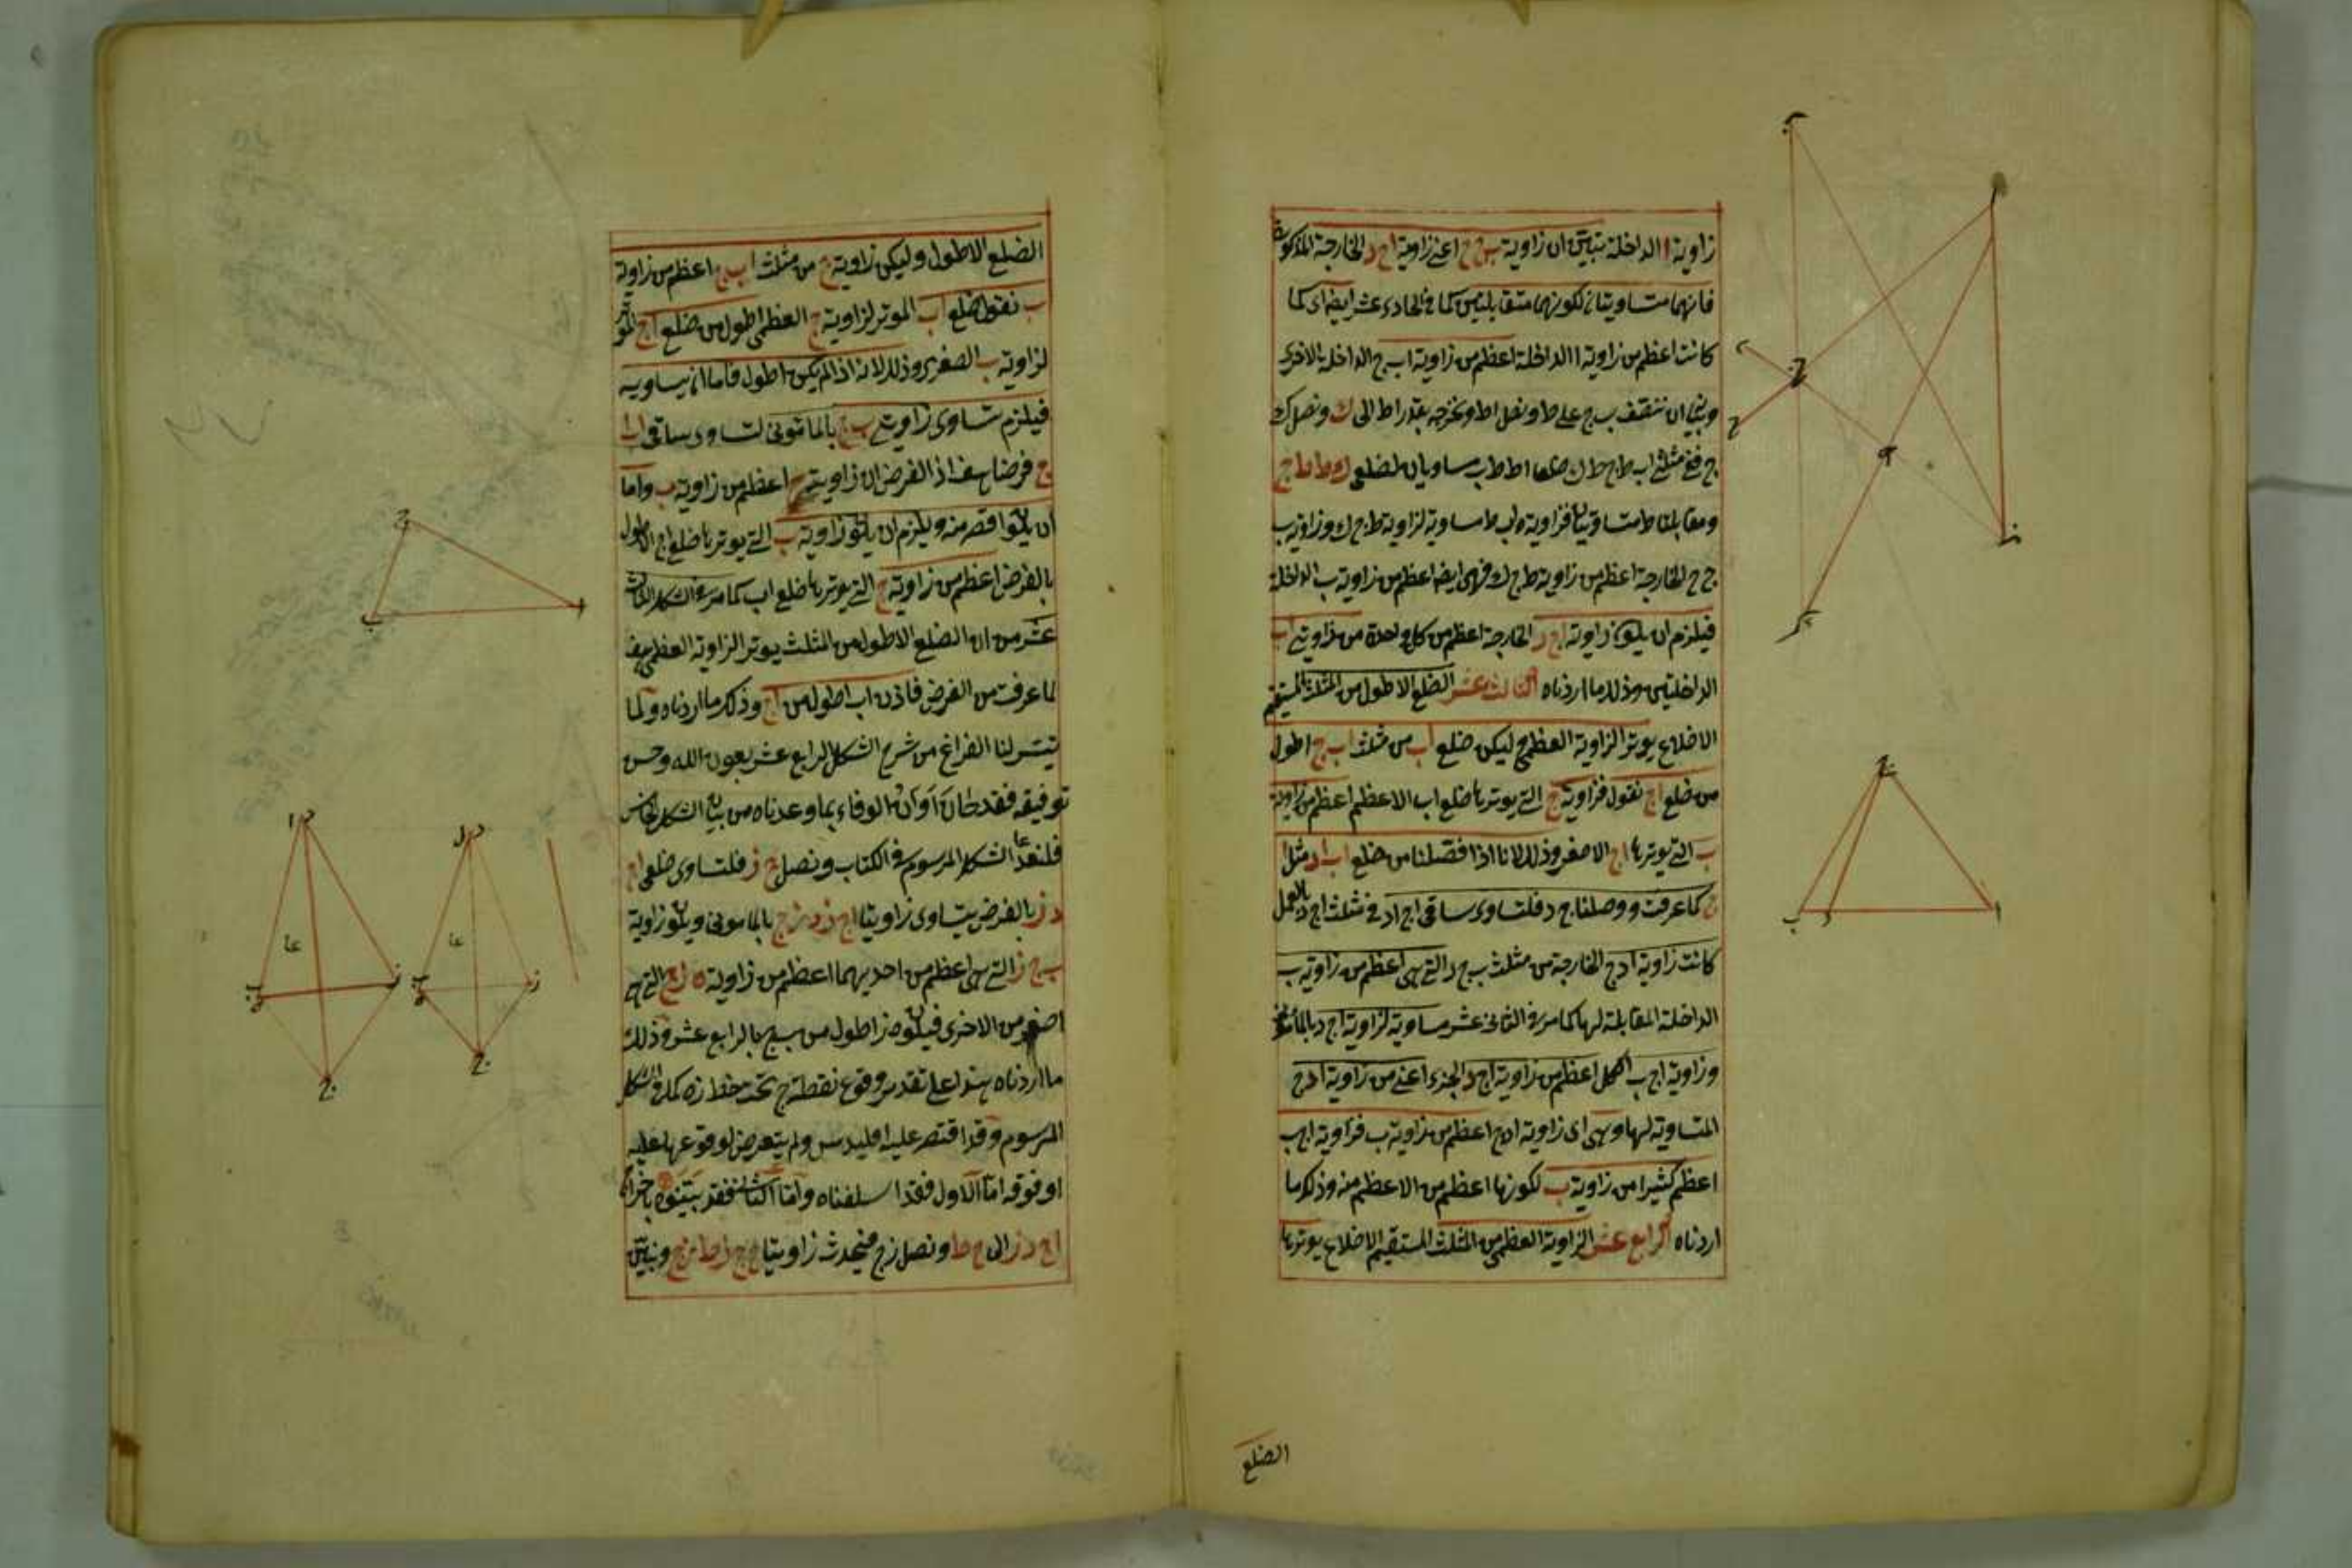 زاوية ا الداخلة بتبين ان زاوية ب ج ح اعنى زاوية ا ج د الخارجة المذكورة
فانهما متساويتان لكونهما متقابلتين كما فى الحادى عشر ايضا اى كما
كانت اعظم من زاوية ا الداخلة اعظم من زاوية ا ب ج الداخلة الاخرى
ان ننصف ب ج على ط ونصل ا ط ونخرجه بقدر ا ط الى ك ونصل ك
ج ففى مثلثى ا ب ط ج ط ك ضلعا ا ط ط ب مساويان لضلعى ك ط ط ج
ومقابلتا ط متساويتان فزاوية ا ب ط مساوية لزاوية ط ج ك وزاوية ب
ج ح الخارجة اعظم من زاوية ط ج ك فهى ايضا اعظم من زاوية ب الداخلة
فيلزم ان يكون زاوية ا ج د الخارجة اعظم من كل واحدة من زاويتى ا ب
الداخلتين وذلك ما اردناه الثالث عشر الضلع الاطول من المثلث المستقيم
الاضلاع يوتر الزاوية العظمى ليكن ضلع ا ب من مثلث ا ب ج اطول
من ضلع ا ج نقول فزاوية ج التى يوترها ضلع ا ب الاعظم اعظم من زاوية
ب التى يوترها ا ج الاصغر وذلك لانا اذا فصلنا من ضلع ا ب ا د مثل ا
ج كما عرفت ووصلنا ج د فلتساوى ساقى ا ج ا د فى مثلث ا ج د بالعمل
كانت زاوية ا د ج الخارجة من مثلث ب ج د التى هى اعظم من زاوية ب
الداخلة المقابلة لها كما مر فى الثانى عشر مساوية لزاوية ا ج د بالمأمونى
وزاوية ا ج ب الكل اعظم من زاوية ا ج د الجزء اعنى من زاوية ا د ج
المتساوية لها وهى اى زاوية ا د ج اعظم من زاوية ب فزاوية ا ج ب
اعظم كثيرا من زاوية ب لكونها اعظم من الاعظم منه وذلك ما
اردناه الرابع عشر الزاوية العظمى من المثلث المستقيم الاضلاع يوترها
الضلع
الضلع الاطول وليكن زاوية ج من مثلث ا ب ج اعظم من زاوية
ب نقول ضلع ا ب الموتر لزاوية ج العظمى اطول من ضلع ا ج الموتر
لزاوية ب الصغرى وذلك لانه اذا لم يكن اطول فاما ان يساويه
فيلزم تساوى زاويتى ب ج بالمأمونى لتساوى ساقى ا ب ا
ج فرضا هف اذ الفرض ان زاوية ج اعظم من زاوية ب واما
ان يكون اقصر منه ويلزم ان يكون زاوية ب التى يوترها ضلع ا ج الاطول
بالفرض اعظم من زاوية ج التى يوترها ضلع ا ب كما مر فى الشكل الثالث
عشر من ان الضلع الاطول من المثلث يوتر الزاوية العظمى هف
لما عرفت من الفرض فاذن ا ب اطول من ا ج وذلك ما اردناه ولما
تيسر لنا الفراغ من شرح الشكل الرابع عشر بعون الله وحسن
توفيقه فقد حان اوان الوفاء بما وعدناه من بيان الشكل الخامس
فلنعد الشكل المرسوم فى الكتاب ونصل ج ز فلتساوى ضلعى ا ج
د ز بالفرض يتساوى زاويتا ا ج ز د ز ج بالمأمونى ويكون زاوية
ب ج ز التى هى اعظم من احديهما اعظم من زاوية ه ز ج التى هى
اصغر من الاخرى فيكون ه ز اطول من ب ج بالرابع عشر وذلك
ما اردناه هذا على تقدير وقوع نقطة ج تحت خط ز ه كما فى الشكل
المرسوم وقد اقتصر عليه اقليدس ولم يتعرض لوقوعها عليه
او فوقه اما الاول فقد اسلفناه واما الثانى فقد بينوه باخراج
ا ج د ز الى ح ط ونصل ز ج فيحدث زاويتا ح ج ز ط ز ج ونبين